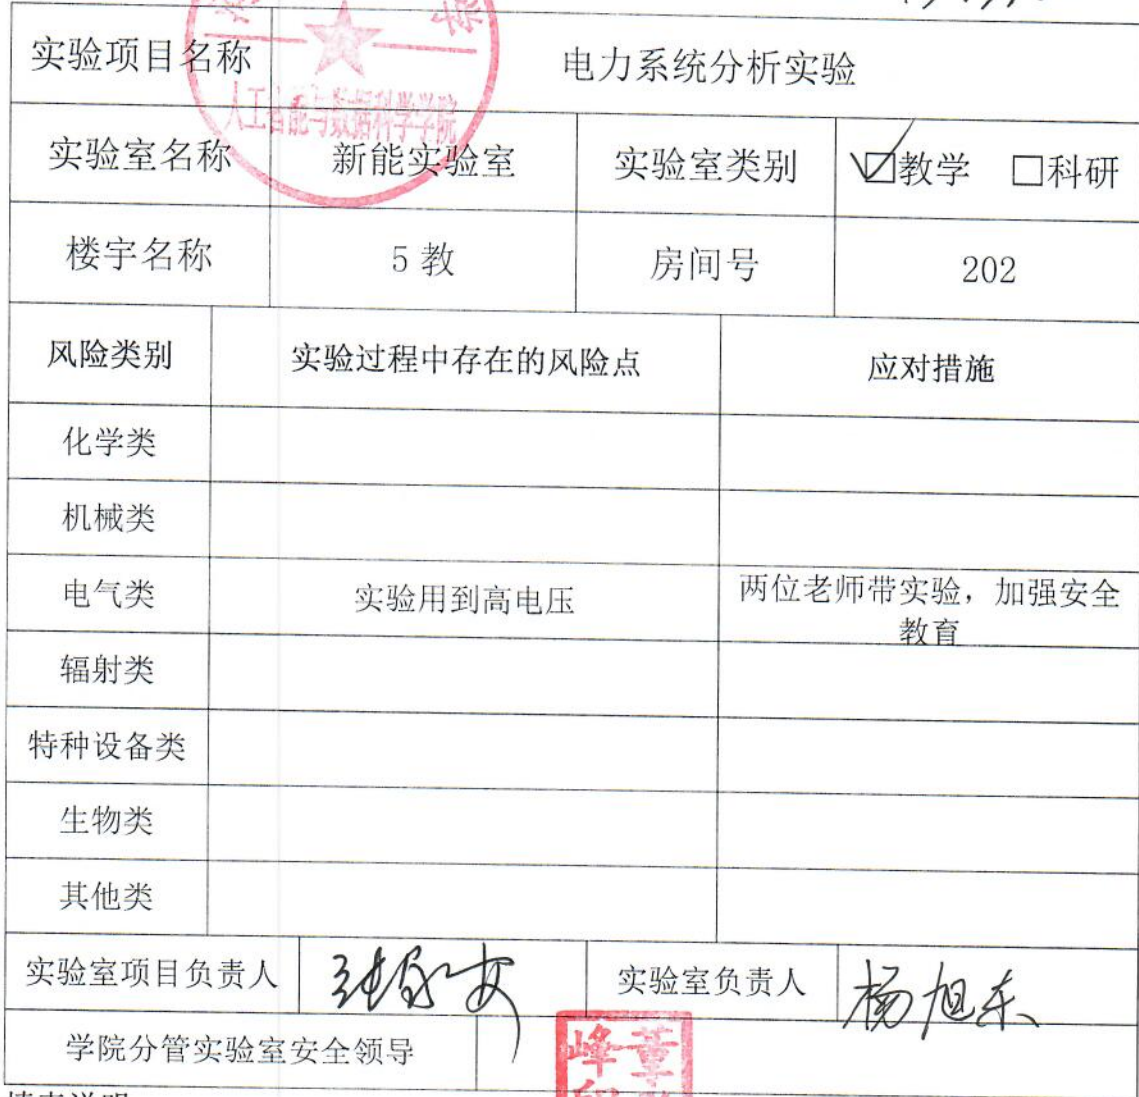 实验项目名称 电力系统分析实验
人工智能与数据科学学院
实验室名称 新能实验室 实验室类别 ☑教学 □科研
楼宇名称 5教 房间号 202
风险类别 实验过程中存在的风险点 应对措施
化学类
机械类
电气类 实验用到高电压 两位老师带实验，加强安全
教育
辐射类
特种设备类
生物类
其他类
实验室项目负责人 实验室负责人 杨旭东
学院分管实验室安全领导
董
峰